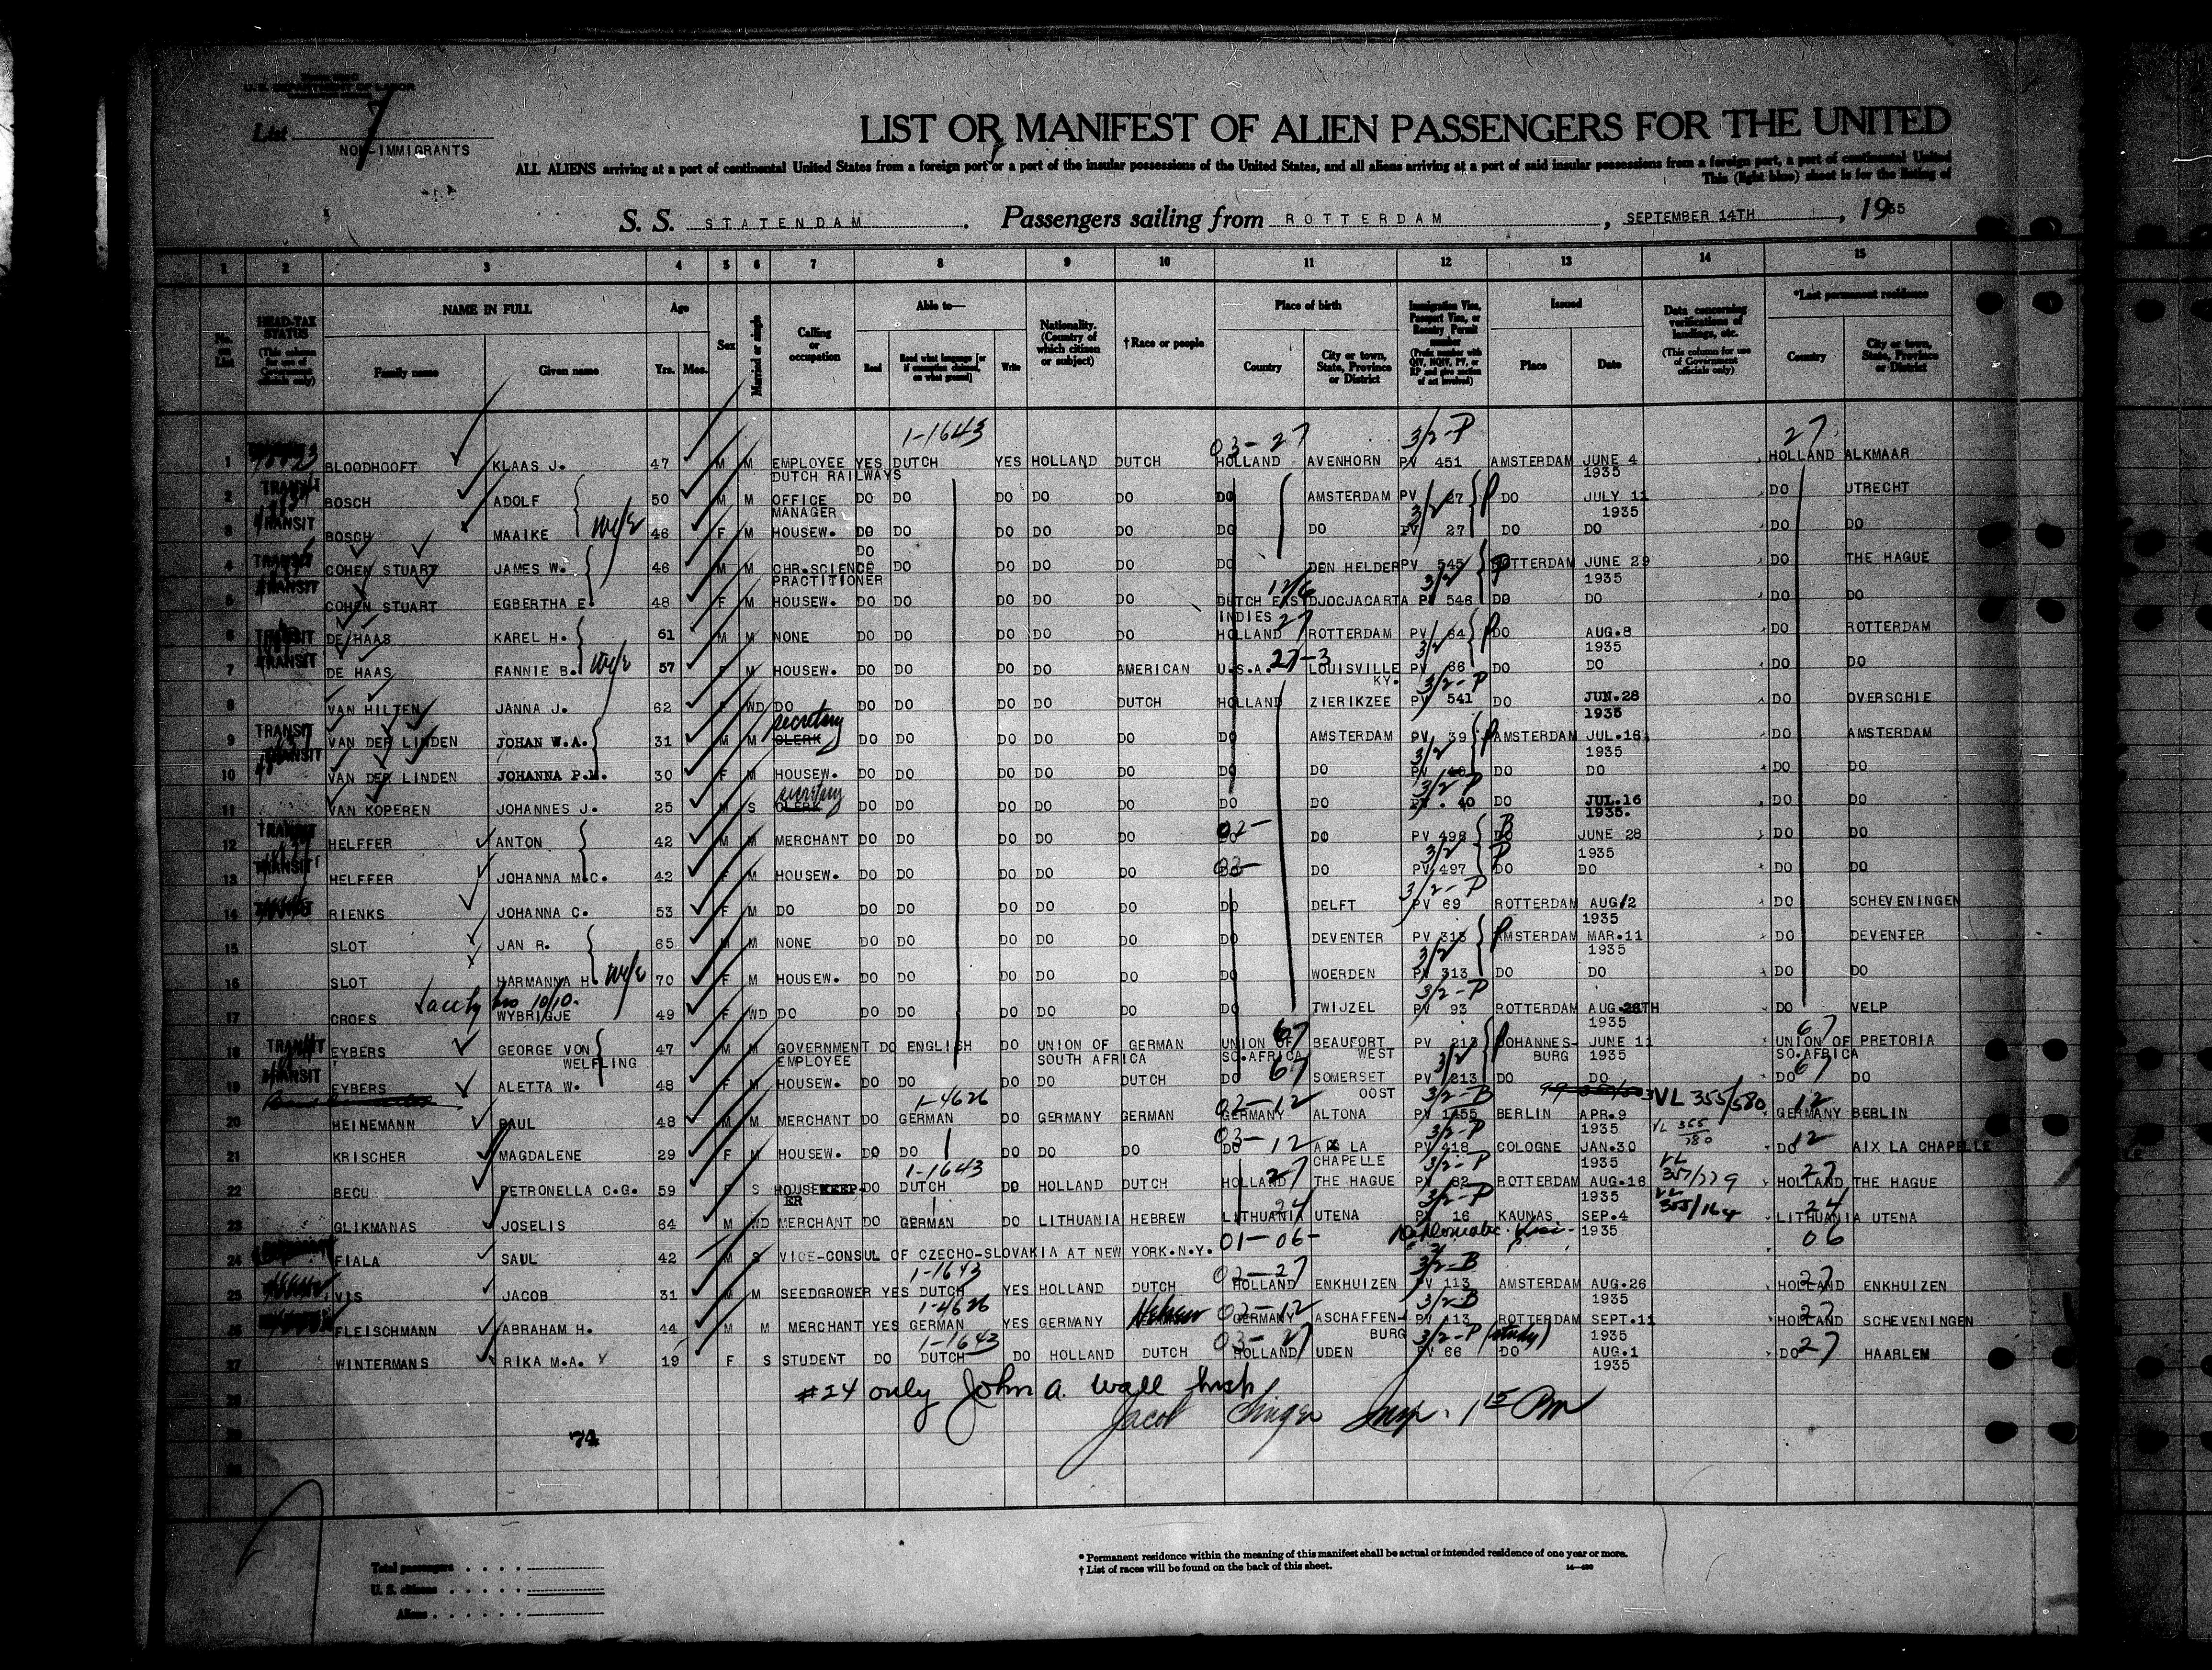 U.S. DEPARTMENT OF LABOR
List 7
NON-IMMIGRANTS
LIST OR MANIFEST OF ALIEN PASSENGERS FOR THE UNITED
ALL ALIENS arriving at a port of continental United States from a foreign port or a port of the insular possessions of the United States, and all aliens arriving at a port of said insular possessions from a foreign port, a port of continental United
This (light blue) sheet is for the listing of
S. S. STATENDAM. Passengers sailing from ROTTERDAM, SEPTEMBER 14TH, 1935
1 2 3 4 5 6 7 8 9 10 11 12 13 14 15
No. on List
HEAD-TAX STATUS (This column for use of Government officials only)
NAME IN FULL Family name Given name
Age Yrs. Mos.
Sex
Married or single
Calling or occupation
Able to— Read Read what language [or if exemption claimed, on what ground] Write
Nationality. (Country of which citizen or subject)
† Race or people
Place of birth Country City or town, State, Province or District
Immigration Visa, Passport Visa, or Reentry Permit number (Prefix number with QIV, NQIV, PV, or RP and give section of act involved)
Issued Place Date
Data concerning verifications of landings, etc. (This column for use of Government officials only)
*Last permanent residence Country City or town, State, Province or District
1-1643 03-27 3/2-P 27
1 BLOODHOOFT KLAAS J. 47 M M EMPLOYEE YES DUTCH YES HOLLAND DUTCH HOLLAND AVENHORN PV 451 AMSTERDAM JUNE 4 HOLLAND ALKMAAR
DUTCH RAILWAYS 1935
2 TRANSIT BOSCH ADOLF 50 M M OFFICE DO DO DO DO DO DO AMSTERDAM PV 27 P DO JULY 11 DO UTRECHT
MANAGER 3/2 1935
3 TRANSIT BOSCH MAAIKE W/E 46 F M HOUSEW. DO DO DO DO DO DO DO PV 27 DO DO DO DO
DO
4 TRANSIT COHEN STUART JAMES W. 46 M M CHR.SCIENCE DO DO DO DO DO DEN HELDER PV 545 P ROTTERDAM JUNE 29 DO THE HAGUE
PRACTITIONER 3/2 1935
5 TRANSIT COHEN STUART EGBERTHA E. 48 F M HOUSEW. DO DO DO DO DO DUTCH EAST DJOCJACARTA PV 546 DO DO DO DO
INDIES 27
6 TRANSIT DE HAAS KAREL H. 61 M M NONE DO DO DO DO DO HOLLAND ROTTERDAM PV 64 P DO AUG.8 DO ROTTERDAM
3/2 1935
7 TRANSIT DE HAAS FANNIE B. W/E 57 F M HOUSEW. DO DO DO DO AMERICAN U.S.A. 27-3 LOUISVILLE PV 66 DO DO DO DO
KY. 3/2-P
8 VAN HILTEN JANNA J. 62 F WD DO DO DO DO DO DUTCH HOLLAND ZIERIKZEE PV 541 DO JUN.28 DO OVERSCHIE
secretary 1935
9 TRANSIT VAN DER LINDEN JOHAN W.A. 31 M M CLERK DO DO DO DO DO DO AMSTERDAM PV 39 P AMSTERDAM JUL.16 DO AMSTERDAM
3/2 1935
10 TRANSIT VAN DER LINDEN JOHANNA P.M. 30 F M HOUSEW. DO DO DO DO DO DO DO PV DO DO DO DO
secretary 3/2-P
11 VAN KOPEREN JOHANNES J. 25 M S CLERK DO DO DO DO DO DO DO PV . 40 DO JUL.16 DO DO
1935.
12 TRANSIT HELFFER ANTON 42 M M MERCHANT DO DO DO DO DO 02- DO DO PV 496 B DO JUNE 28 DO DO
3/2 P 1935
13 TRANSIT HELFFER JOHANNA M.C. 42 F M HOUSEW. DO DO DO DO DO 03- DO PV 497 DO DO DO DO
3/2-P
14 TRANSIT RIENKS JOHANNA C. 53 F M DO DO DO DO DO DO DO DELFT PV 69 ROTTERDAM AUG/2 DO SCHEVENINGEN
1935
15 SLOT JAN R. 65 M M NONE DO DO DO DO DO DO DEVENTER PV 313 P AMSTERDAM MAR.11 DO DEVENTER
3/2 1935
16 SLOT HARMANNA H. W/E 70 F M HOUSEW. DO DO DO DO DO DO WOERDEN PV 313 DO DO DO DO
10/10- 3/2-P
17 CROES WYBRIGJE 49 F WD DO DO DO DO DO DO DO TWIJZEL PV 93 ROTTERDAM AUG.26TH DO VELP
67 1935 67
18 TRANSIT EYBERS GEORGE VON 47 M M GOVERNMENT DO ENGLISH DO UNION OF GERMAN UNION OF BEAUFORT PV 213 P JOHANNES- JUNE 11 UNION OF PRETORIA
WELFLING EMPLOYEE SOUTH AFRICA SO.AFRICA WEST 3/2 BURG 1935 SO.AFRICA
19 TRANSIT EYBERS ALETTA W. 48 F M HOUSEW. DO DO DO DO DUTCH DO 67 SOMERSET PV 213 DO DO DO 67 DO
1-4626 02-12 OOST 3/2-B VL 355/580 12
20 HEINEMANN PAUL 48 M M MERCHANT DO GERMAN DO GERMANY GERMAN GERMANY ALTONA PV 1455 BERLIN APR.9 GERMANY BERLIN
03-12 3/2-P 1935 VL 355/780
21 KRISCHER MAGDALENE 29 F M HOUSEW. DO DO DO DO DO DO AIX LA PV 418 COLOGNE JAN.30 DO 12 AIX LA CHAPELLE
1-1643 CHAPELLE 3/2-P 1935 VL
22 BECU PETRONELLA C.G. 59 F S HOUSEKEEP- DO DUTCH DO HOLLAND DUTCH HOLLAND 27 THE HAGUE PV 82 ROTTERDAM AUG.16 357/779 HOLLAND 27 THE HAGUE
ER 24 3/2-P 1935 VL
23 GLIKMANAS JOSELIS 64 M WD MERCHANT DO GERMAN DO LITHUANIA HEBREW LITHUANIA UTENA PV 16 KAUNAS SEP.4 355/164 LITHUANIA 24 UTENA
01-06- Diplomatic Visa- 1935
24 FIALA SAUL 42 M S VICE-CONSUL OF CZECHO-SLOVAKIA AT NEW YORK.N.Y. 06
1-1643 02-27 3/2-B
25 VIS JACOB 31 M M SEEDGROWER YES DUTCH YES HOLLAND DUTCH HOLLAND ENKHUIZEN PV 113 AMSTERDAM AUG.26 HOLLAND 27 ENKHUIZEN
1-4626 02-12 3/2-B 1935
26 FLEISCHMANN ABRAHAM H. 44 M M MERCHANT YES GERMAN YES GERMANY Hebrew GERMANY ASCHAFFEN- PV 113 ROTTERDAM SEPT.11 HOLLAND 27 SCHEVENINGEN
1-1643 03-27 BURG 3/2-P (study) 1935
27 WINTERMANS RIKA M.A. 19 F S STUDENT DO DUTCH DO HOLLAND DUTCH HOLLAND UDEN PV 66 DO AUG.1 DO 27 HAARLEM
1935
28 #24 only John A. Wall Insp.
Jacob Singer Insp. 1 15 Pm
29 74
30
Total passengers
U. S. citizens
Aliens
* Permanent residence within the meaning of this manifest shall be actual or intended residence of one year or more.
† List of races will be found on the back of this sheet.